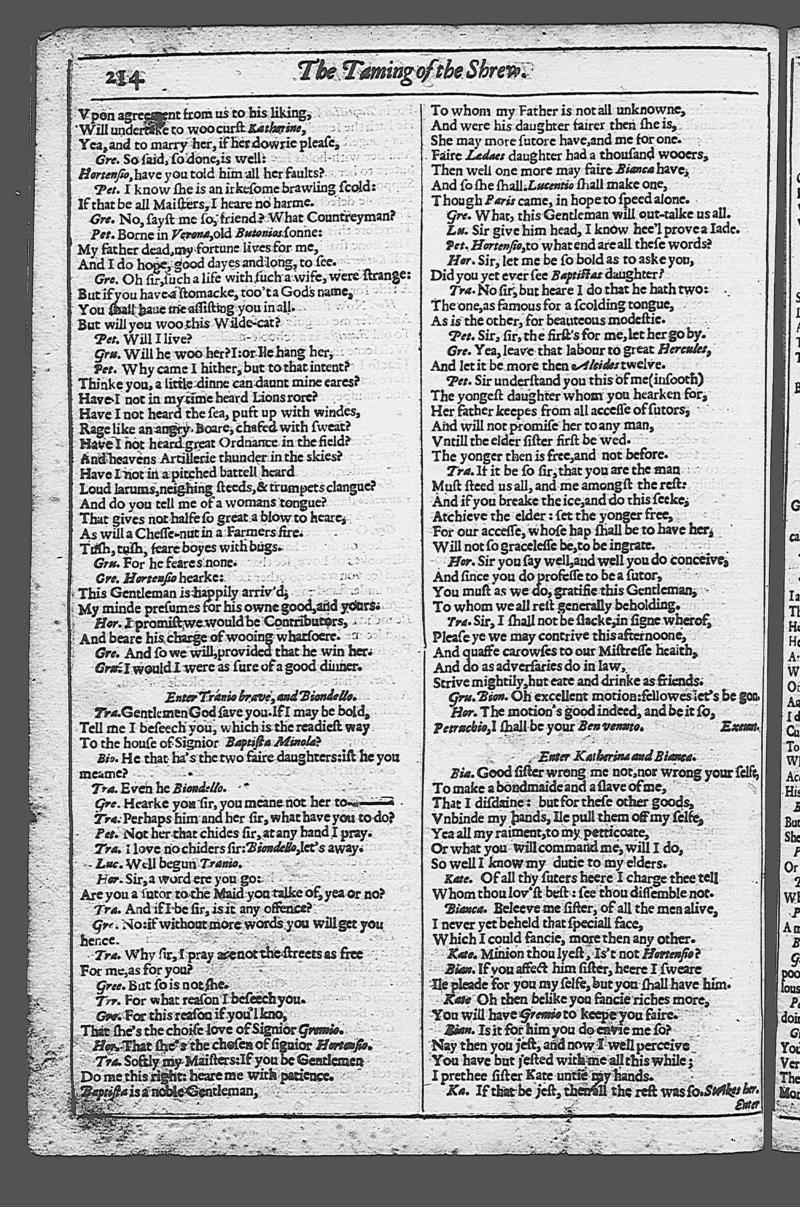 214
The Taming of the Shrew.
Vpon agreement from us to his liking,
Will undertake to woo curſt Katharine,
Yea, and to marry her, if her dowrie pleaſe,
Gre. So ſaid, ſo done, is well:
Hortenſio, have you told him all her faults?
Pet. I know ſhe is an irkeſome brawling ſcold:
If that be all Maiſters, I heare no harme.
Gre. No, ſayſt me ſo, friend? What Countreyman?
Pet. Borne in Verona, old Butonios ſonne:
My father dead, my fortune lives for me,
And I do hope, good dayes and long, to ſee.
Gre. Oh ſir, ſuch a life with ſuch a wife, were ſtrange:
But if you have a ſtomacke, too't a Gods name,
You ſhall haue me aſſiſting you in all.
But will you woo this Wilde-cat?
Pet. Will I live?
Gru. Will he woo her? I: or Ile hang her,
Pet. Why came I hither, but to that intent?
Thinke you, a little dinne can daunt mine eares?
Have I not in my time heard Lions rore?
Have I not heard the ſea, puft up with windes,
Rage like an angry Boare, chafed with ſweat?
Have I not heard great Ordnance in the field?
And heavens Artillerie thunder in the skies?
Have I not in a pitched battell heard
Loud larums, neighing ſteeds, & trumpets clangue?
And do you tell me of a womans tongue?
That gives not halfe ſo great a blow to heare,
As will a Cheſſe-nut in a Farmers fire.
Tuſh, tuſh, feare boyes with bugs.
Gru. For he feares none.
Gre. Hortenſio hearke:
This Gentleman is happily arriv'd,
My minde preſumes for his owne good, and yours.
Hor. I promiſt we would be Contributors,
And beare his charge of wooing whatſoere.
Gre. And ſo we will, provided that he win her.
Gru. I would I were as ſure of a good dinner.
Enter Tranio brave, and Biondello.
Tra. Gentlemen God ſave you. If I may be bold,
Tell me I beſeech you, which is the readieſt way
To the houſe of Signior Baptiſta Minola?
Bio. He that ha's the two faire daughters: iſt he you
meame?
Tra. Even he Biondello.
Gre. Hearke you ſir, you meane not her to——
Tra. Perhaps him and her ſir, what have you to do?
Pet. Not her that chides ſir, at any hand I pray.
Tra. I love no chiders ſir: Biondello, let's away.
Luc. Well begun Tranio.
Hor. Sir, a word ere you go:
Are you a ſutor to the Maid you talke of, yea or no?
Tra. And if I be ſir, is it any offence?
Gre. No: if without more words you will get you
hence.
Tra. Why ſir, I pray are not the ſtreets as free
For me, as for you?
Gree. But ſo is not ſhe.
Trr. For what reaſon I beſeech you.
Gre. For this reaſon if you'l kno,
That ſhe's the choiſe love of Signior Gremio.
Hor. That ſhe's the choſen of ſignior Hortenſio.
Tra. Softly my Maiſters: If you be Gentlemen
Do me this right: heare me with patience.
Baptiſta is a noble Gentleman,
To whom my Father is not all unknowne,
And were his daughter fairer then ſhe is,
She may more ſutors have, and me for one.
Faire Ledaes daughter had a thouſand wooers,
Then well one more may faire Bianca have;
And ſo ſhe ſhall. Lucentio ſhall make one,
Though Paris came, in hope to ſpeed alone.
Gre. What, this Gentleman will out-talke us all.
Lu. Sir give him head, I know hee'l prove a Iade.
Pet. Hortenſio, to what end are all theſe words?
Hor. Sir, let me be ſo bold as to aske you,
Did you yet ever ſee Baptiſtas daughter?
Tra. No ſir, but heare I do that he hath two:
The one, as famous for a ſcolding tongue,
As is the other, for beauteous modeſtie.
Pet. Sir, ſir, the firſt's for me, let her go by.
Gre. Yea, leave that labour to great Hercules,
And let it be more then Alcides twelve.
Pet. Sir underſtand you this of me (inſooth)
The yongeſt daughter whom you hearken for,
Her father keepes from all acceſſe of ſutors,
And will not promiſe her to any man,
Vntill the elder ſiſter firſt be wed.
The yonger then is free, and not before.
Tra. If it be ſo ſir, that you are the man
Muſt ſteed us all, and me amongſt the reſt:
And if you breake the ice, and do this ſeeke,
Atchieve the elder: ſet the yonger free,
For our acceſſe, whoſe hap ſhall be to have her,
Will not ſo graceleſſe be, to be ingrate.
Hor. Sir you ſay well, and well you do conceive,
And ſince you do profeſſe to be a ſutor,
You muſt as we do, gratifie this Gentleman,
To whom we all reſt generally beholding.
Tra. Sir, I ſhall not be ſlacke, in ſigne wherof,
Pleaſe ye we may contrive this afternoone,
And quaffe carowſes to our Miſtreſſe health,
And do as adverſaries do in law,
Strive mightily, but eate and drinke as friends.
Gru. Bion. Oh excellent motion: fellowes let's be gon.
Hor. The motion's good indeed, and be it ſo,
Petruchio, I ſhall be your Ben venuto. Exeunt.
Enter Katharina and Bianca.
Bia. Good ſiſter wrong me not, nor wrong your ſelfe,
To make a bondmaide and a ſlave of me,
That I diſdaine: but for theſe other goods,
Vnbinde my hands, Ile pull them off my ſelfe,
Yea all my raiment, to my petticoate,
Or what you will command me, will I do,
So well I know my dutie to my elders.
Kate. Of all thy ſuters heere I charge thee tell
Whom thou lov'ſt beſt: ſee thou diſſemble not.
Bianca. Beleeve me ſiſter, of all the men alive,
I never yet beheld that ſpeciall face,
Which I could fancie, more then any other.
Kate. Minion thou lyeſt, Is't not Hortenſio?
Bian. If you affect him ſiſter, heere I ſweare
Ile pleade for you my ſelfe, but you ſhall have him.
Kate Oh then belike you fancie riches more,
You will have Gremio to keepe you faire.
Bian. Is it for him you do envie me ſo?
Nay then you jeſt, and now I well perceive
You have but jeſted with me all this while;
I prethee ſiſter Kate untie my hands.
Ka. If that be jeſt, then all the reſt was ſo. Strikes her.
Enter